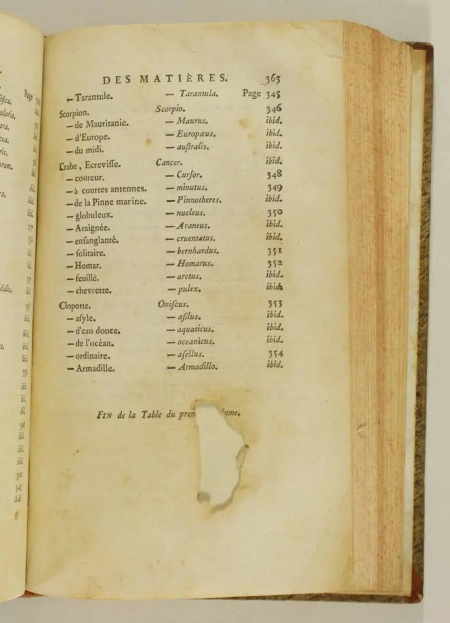 DES MATIÈRES. 363
— Tarantule. — Tarantula. Page 345
Scorpion. Scorpio. 346
— de Mauritanie. — Maurus. ibid.
— d'Europe. — Europæus. ibid.
— du midi. — auſtralis. ibid.
Crabe, Ecreviſſe. Cancer. ibid.
— coureur. — Curſor. 348
— à courtes antennes. — minutus. 349
— de la Pinne marine. — Pinnotheres. ibid.
— globuleux. — nucleus. 350
— Araignée. — Araneus. ibid.
— enſanglanté. — cruentatus. ibid.
— ſolitaire. — bernhardus. 351
— Homar. — Homarus. 352
— feuillé. — arctus. ibid.
— chevrette. — pulex. ibid.
Cloporte. Oniſcus. 353
— aſyle. — aſilus. ibid.
— d'eau douce. — aquaticus. ibid.
— de l'océan. — oceanicus. ibid.
— ordinaire. — aſellus. 354
— Armadille. — Armadillo. ibid.
FIN de la Table du